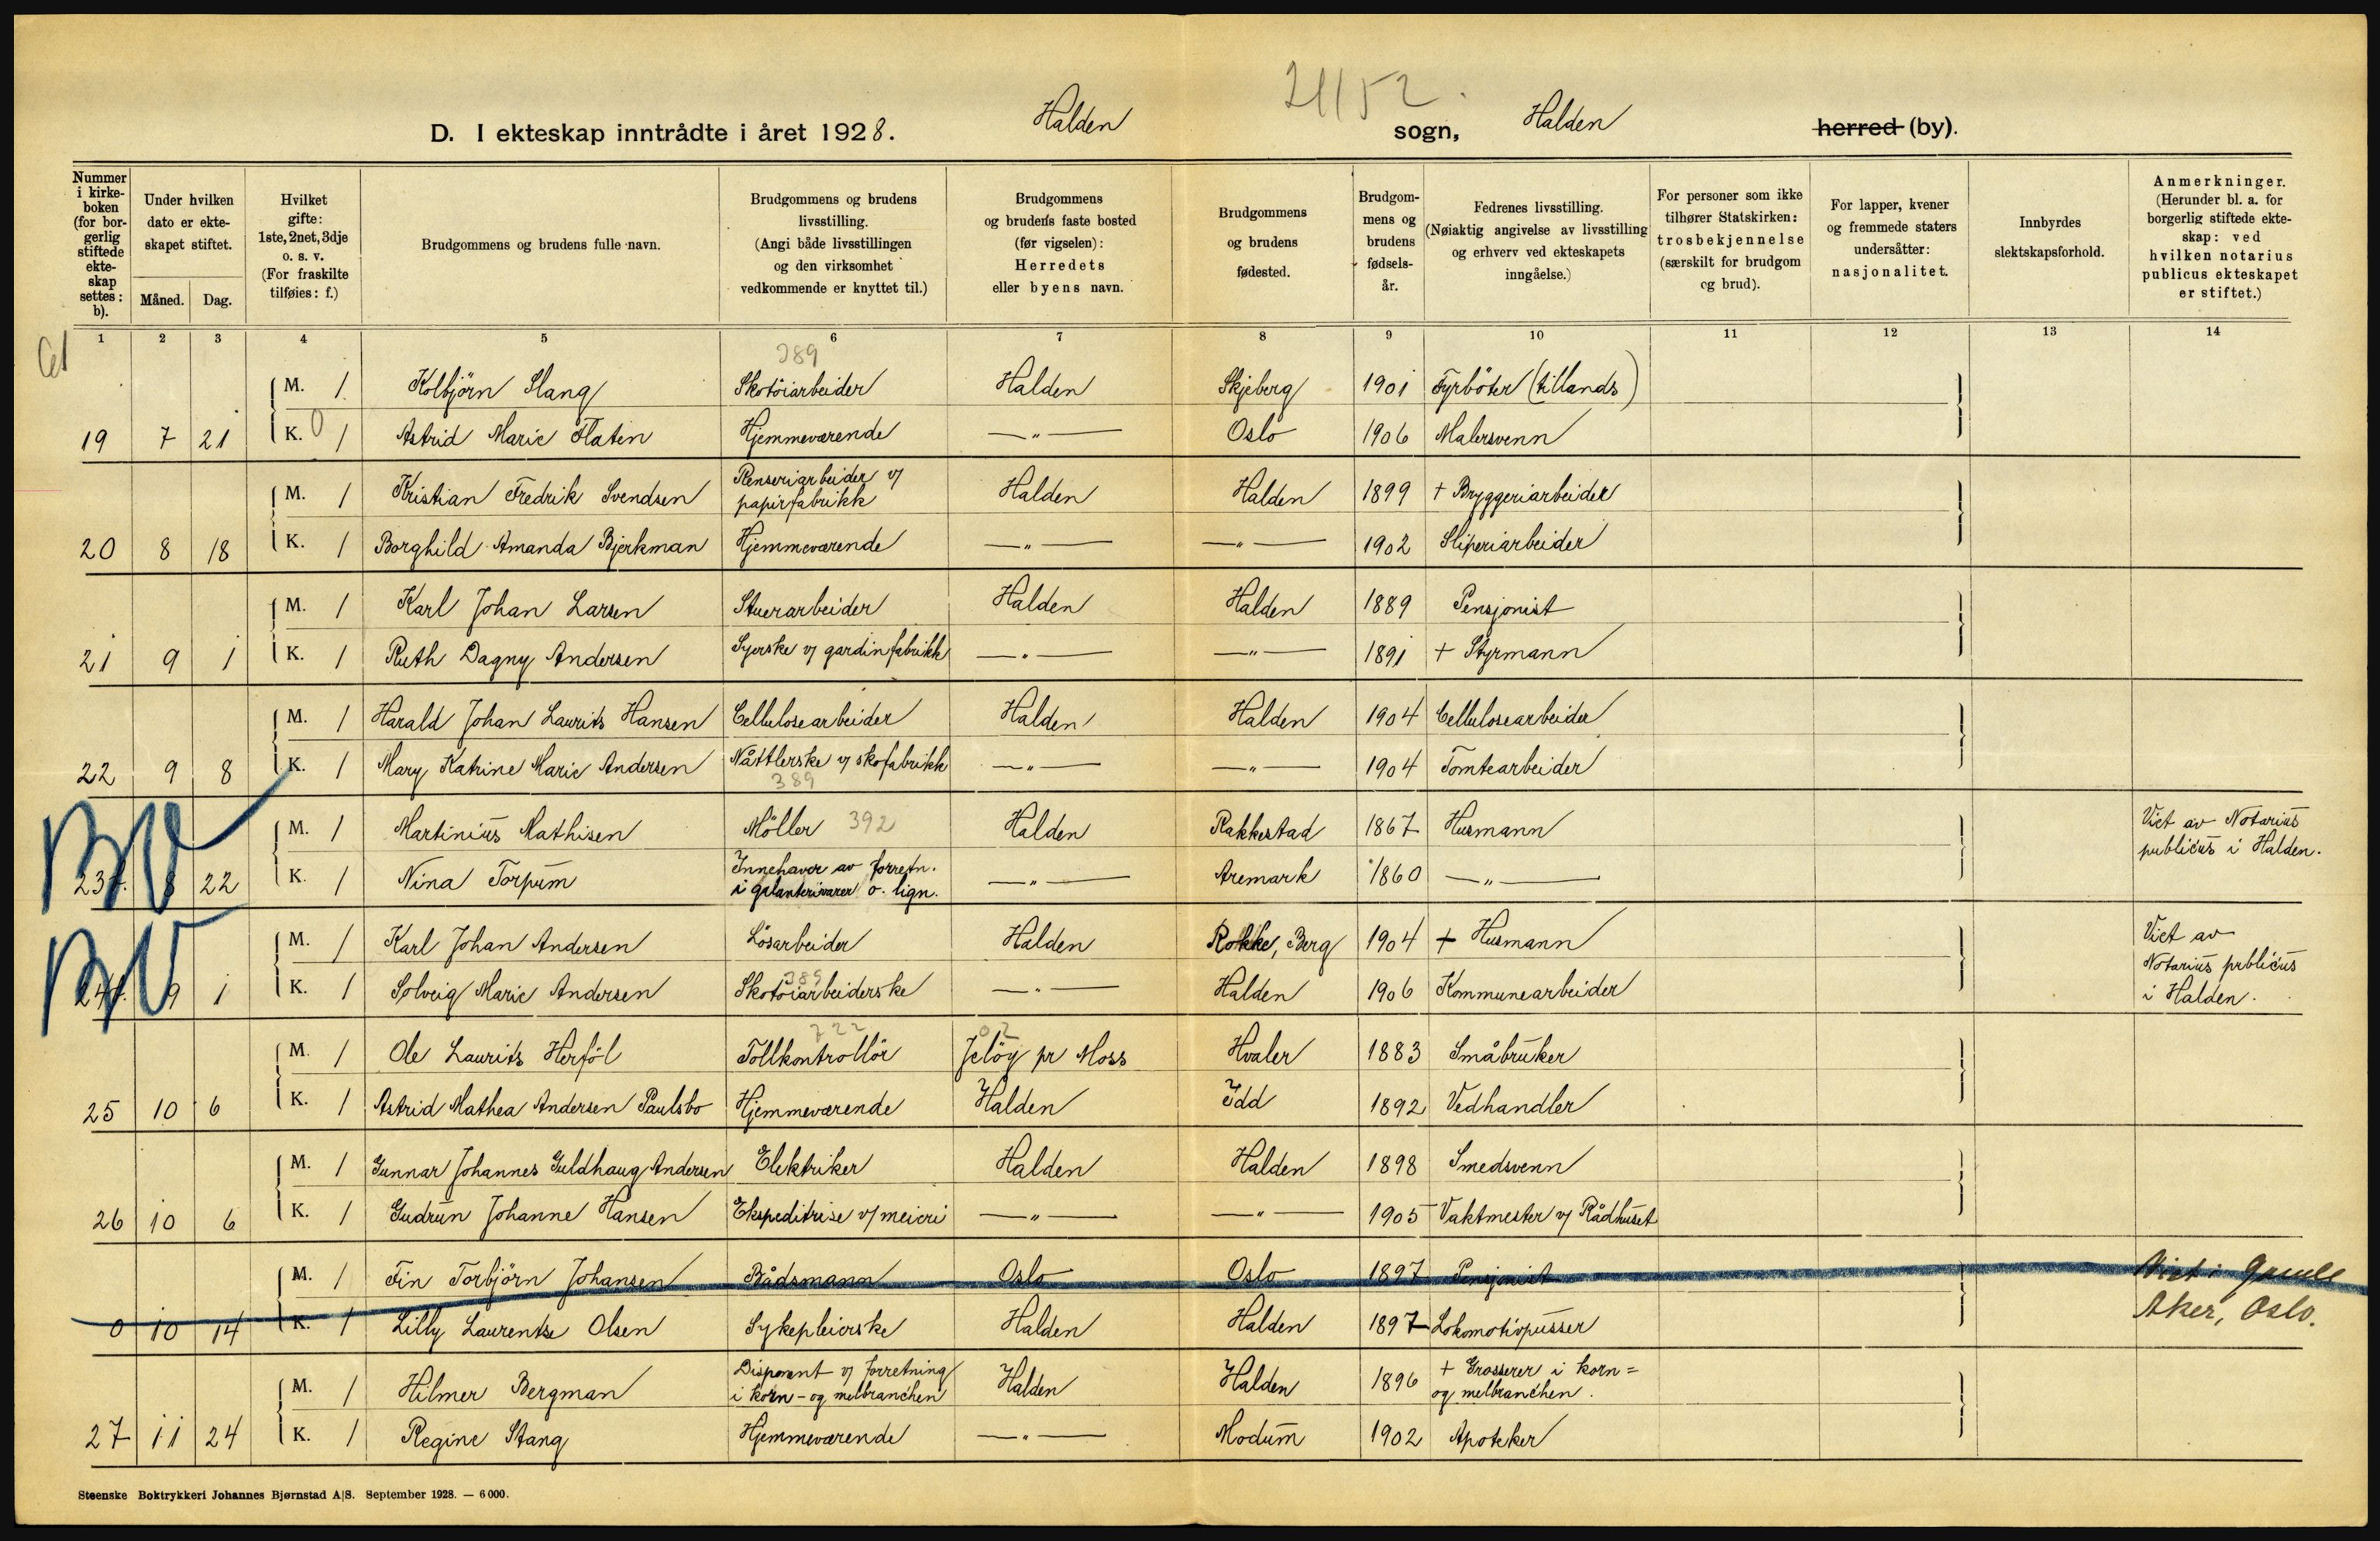 21152.
D. I ekteskap inntrådte i året 1928. Halden sogn, Halden herred (by).
Nummer i kirkeboken (for borgerlig stiftede ekteskap settes: b).
Under hvilken dato er ekteskapet stiftet.
Måned. Dag.
Hvilket gifte: 1ste, 2net, 3dje o. s. v. (For fraskilte tilføies: f.)
Brudgommens og brudens fulle navn.
Brudgommens og brudens livsstilling. (Angi både livsstillingen og den virksomhet vedkommende er knyttet til.)
Brudgommens og brudens faste bosted (før vigselen): Herredets eller byens navn.
Brudgommens og brudens fødested.
Brudgommens og brudens fødselsår.
Fedrenes livsstilling. (Nøiaktig angivelse av livsstilling og erhverv ved ekteskapets inngåelse.)
For personer som ikke tilhører Statskirken: trosbekjennelse (særskilt for brudgom og brud).
For lapper, kvener og fremmede staters undersåtter: nasjonalitet.
Innbyrdes slektskapsforhold.
Anmerkninger. (Herunder bl. a. for borgerlig stiftede ekteskap: ved hvilken notarius publicus ekteskapet er stiftet.)
1 2 3 4 5 6 7 8 9 10 11 12 13 14
389
M. 1 Kolbjörn Slang Skotöiarbeider Halden Skjeberg 1901 Fyrböter (tillands)
19 7 21 K. 0 1 Astrid Marie Flaten Hjemmeværende —"— Oslo 1906 Malersvenn
M. 1 Kristian Fredrik Svendsen Renseriarbeider v/ papirfabrikk Halden Halden 1899 + Bryggeriarbeider
20 8 18 K. 1 Borghild Amanda Bjerkman Hjemmeværende —"— —"— 1902 Sliperiarbeider
M. 1 Karl Johan Larsen Stuerarbeider Halden Halden 1889 Pensjonist
21 9 1 K. 1 Ruth Dagny Andersen Syerske v/ gardinfabrikk —"— —"— 1891 + Styrmann
M. 1 Harald Johan Laurits Hansen Cellulosearbeider Halden Halden 1904 Cellulosearbeider
22 9 8 K. 1 Mary Katrine Marie Andersen Nåtlerske v/ skofabrikk —"— —"— 1904 Tomtearbeider
389
BV
M. 1 Martinius Mathisen Möller 392 Halden Rakkestad 1867 Husmann Viet av Notarius
publicus i Halden.
23 8 22 K. 1 Nina Torpum Innehaver av forretn. i galanterivarer o. lign. —"— Aremark 1860 —"—
BV
M. 1 Karl Johan Andersen Lösarbeider Halden Rokke, Berg 1904 + Husmann Viet av
Notarius publicus
i Halden.
389
24 9 1 K. 1 Solveig Marie Andersen Skotöiarbeiderske —"— Halden 1906 Kommunearbeider
722 02
M. 1 Ole Laurits Herföl Tollkontrollör Jelöy pr Moss Hvaler 1883 Småbruker
25 10 6 K. 1 Astrid Mathea Andersen Paulsbo Hjemmeværende Halden Idd 1892 Vedhandler
M. 1 Gunnar Johannes Guldhaug Andersen Elektriker Halden Halden 1898 Smedsvenn
26 10 6 K. 1 Gudrun Johanne Hansen Ekspeditrise v/ meieri —"— —"— 1905 Vaktmester v/ Rådhuset
M. 1 Fin Torbjörn Johansen Bådsmann Oslo Oslo 1897 Pensjonist Viet i Gamle
Aker, Oslo.
0 10 14 K. 1 Lilly Laurentse Olsen Sykepleierske Halden Halden 1897 Lokomotivpusser
M. 1 Hilmer Bergman Disponent v/ forretning i korn- og melbranchen Halden Halden 1896 + Grosserer i korn= og melbranchen.
27 11 24 K. 1 Regine Stang Hjemmeværende —"— Modum 1902 Apoteker
Steenske Boktrykkeri Johannes Bjørnstad A|S. September 1928. — 6000.